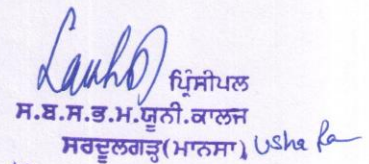 ਪ੍ਰਿੰਸੀਪਲ
ਸ.ਬ.ਸ.ਭ.ਮ.ਯੂਨੀ.ਕਾਲਜ
ਸਰਦੂਲਗੜ੍ਹ(ਮਾਨਸਾ) Usha